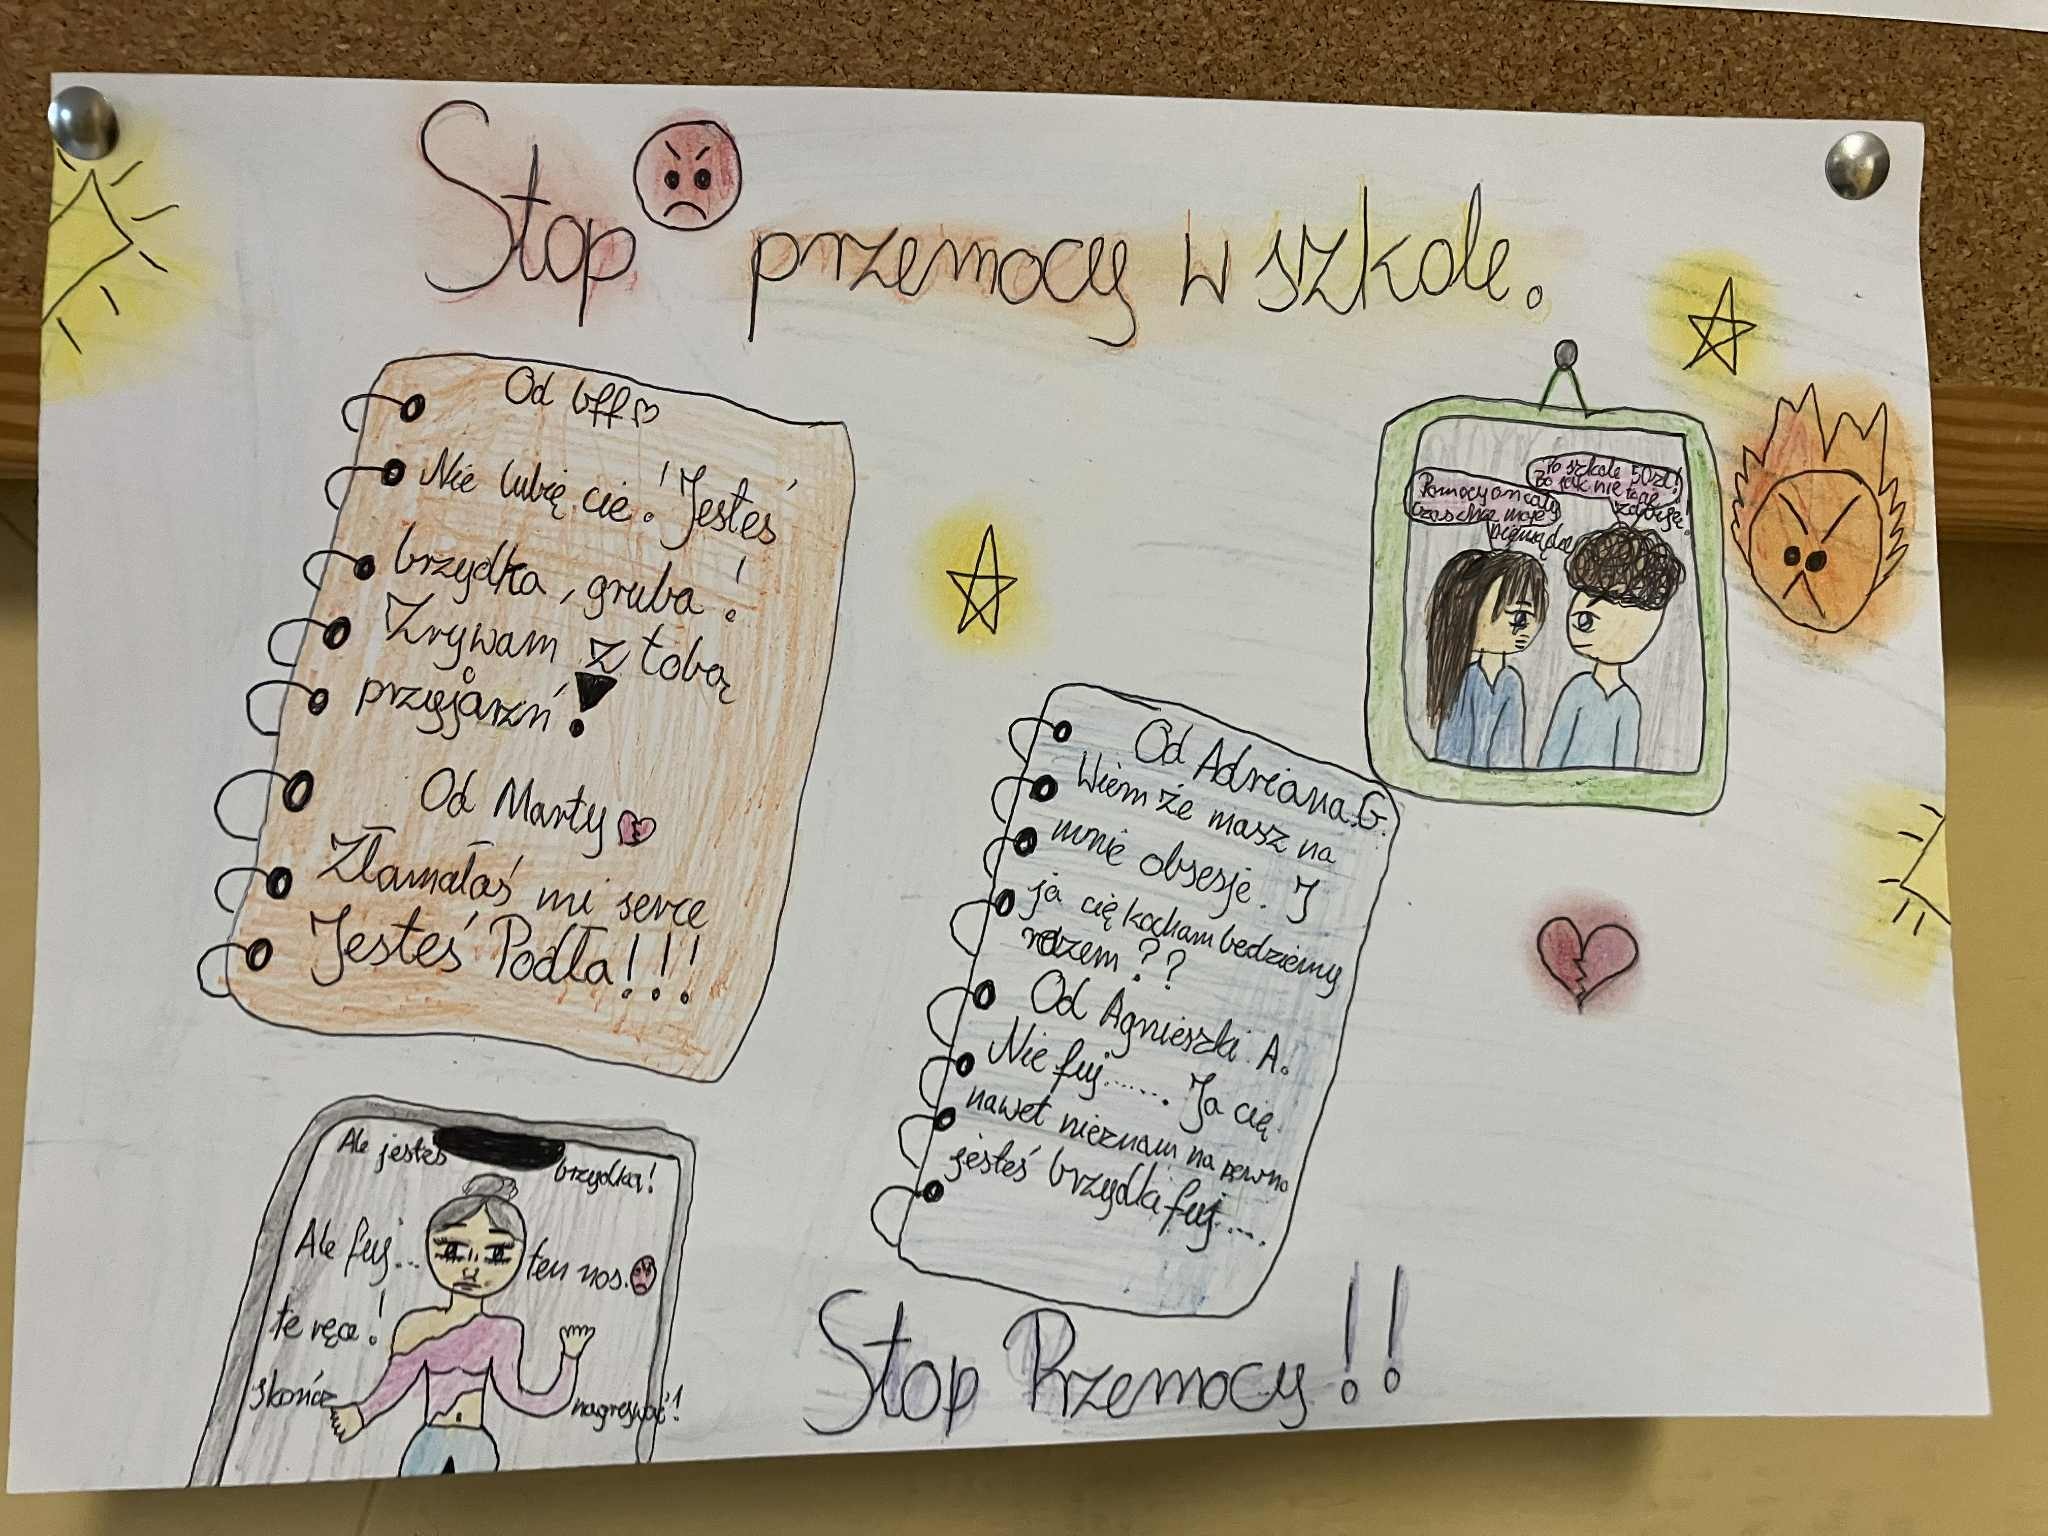 Stop przemocy w szkole.
Od bff
Nie lubię cie! Jesteś
brzydka, gruba!
Zrywam z tobą
przyjaźń!
Od Marty
Złamałaś mi serce
Jesteś Podła!!!
Po szkole 50zł!
Bo jak nie to cię
zabiję!
Pomocy on cały
czas chce moje
pieniądze
Od Adriana.G.
Wiem że masz na
mnie obsesje. I
ja cię kocham będziemy
razem??
Od Agnieszki A.
Nie fuj...... Ja cię
nawet nieznam na pewno
jesteś brzydki fuj....
Ale jesteś brzydka!
Ale fuj... ten nos.
te ręce!
skończ nagrywać!
Stop Przemocy!!